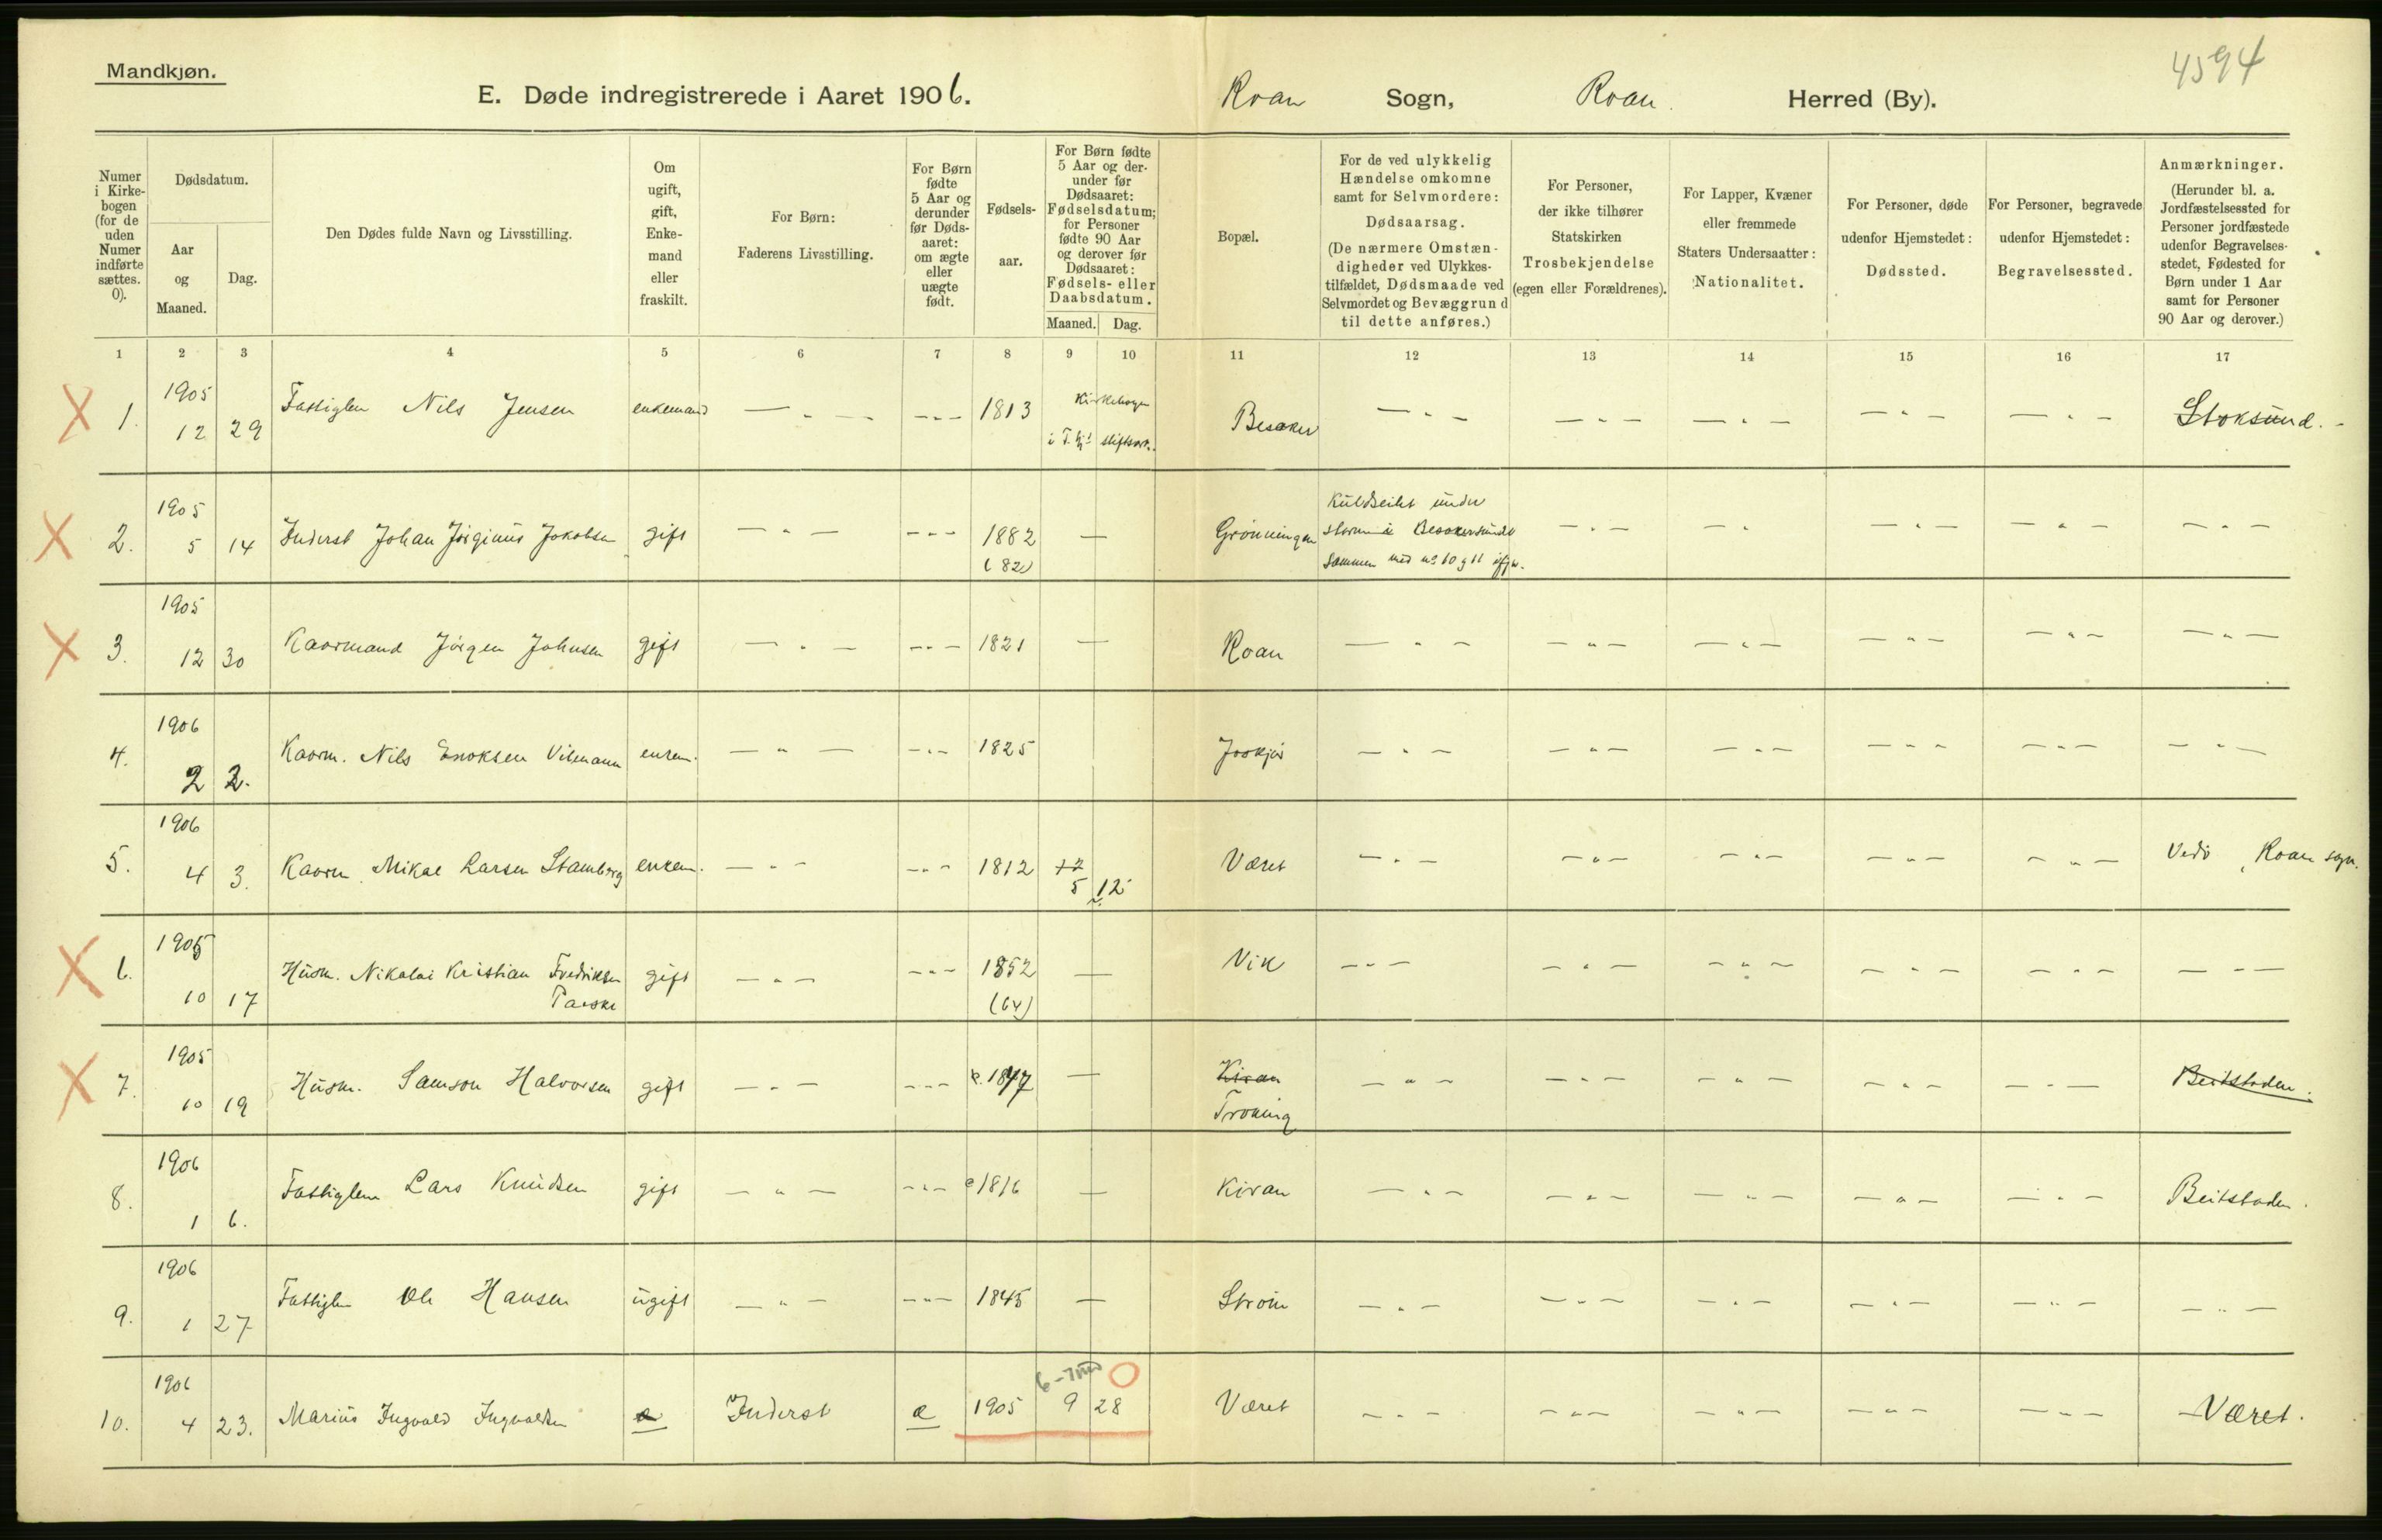 Mandkjøn.
4594
E. Døde indregistrerede i Aaret 1906.
Roan Sogn, Roan. Herred (By).
Numer i Kirkebogen (for de uden Numer indførte sættes. 0).
Dødsdatum.
Aar og Maaned.
Dag.
Den Dødes fulde Navn og Livsstilling.
Om ugift, gift, Enkemand eller fraskilt.
For Børn: Faderens Livsstilling.
For Børn fødte 5 Aar og derunder før Dødsaaret: om ægte eller uægte født.
Fødselsaar.
For Børn fødte 5 Aar og derunder før Dødsaaret: Fødselsdatum; for Personer fødte 90 Aar og derover før Dødsaaret: Fødsels- eller Daabsdatum.
Maaned. Dag.
Bopæl.
For de ved ulykkelig Hændelse omkomne samt for Selvmordere: Dødsaarsag. (De nærmere Omstændigheder ved Ulykkestilfældet, Dødsmaade ved Selvmordet og Bevæggrund til dette anføres.)
For Personer, der ikke tilhører Statskirken Trosbekjendelse (egen eller Forældrenes).
For Lapper, Kvæner eller fremmede Staters Undersaatter: Nationalitet.
For Personer, døde udenfor Hjemstedet: Dødssted.
For Personer, begravede udenfor Hjemstedet: Begravelsessted.
Anmærkninger. (Herunder bl. a. Jordfæstelsessted for Personer jordfæstede udenfor Begravelsesstedet, Fødested for Børn under 1 Aar samt for Personer 90 Aar og derover.)
1 2 3 4 5 6 7 8 9 10 11 12 13 14 15 16 17
1. 1905 12 29 Fattiglem Nils Jensen enkemand — " — - " - 1813 Kirkebogen i Besaker — " — — " — — " — — " — — " — Stoksund.
2. 1905 5 14 Inderst Johan Jørginus Jakobsen gift — " — - " - 1882 (82) — Grønningen Kuldseilet under storm i Besakersundet sammen med no 10 g 11 — " — — " — — " — — " — — " —
3. 1905 12 30 Kaarmand Jørgen Johnsen gift — " — - " - 1821 — Roan — " — — " — — " — — " — — " — — " —
4. 1906 2 2. Kaarm. Nils Enoksen Vikmann enkem. — " — - " - 1825 — " — — " — — " — — " — — " — — " —
5. 1906 4 3. Kaarm. Mikal Larsen Stamberg enkem. — " — - " - 1812 5 12 Været — " — — " — — " — — " — — " — Roan sogn.
6. 1905 10 17 Husm. Nikolai Kristian Fredriksen gift — " — - " - 1852 (64) — Vik — " — — " — — " — — " — — " — — " —
7. 1905 10 19 Husm. Samson Halvorsen gift — " — - " - c. 1847 — Kiran Troning — " — — " — — " — — " — — " — Beitstaden.
8. 1906 1 6. Fattiglem Lars Knudsen gift — " — - " - c 1816 — Kiran — " — — " — — " — — " — — " — Beitstaden.
9. 1906 1 27 Fattiglem Ole Hansen ugift — " — - " - 1845 — Strøm — " — — " — — " — — " — — " — — " —
10. 1906 4 23. Marius Ingvald Ingvaldsen æ Inderst æ 1905 6-7 md 9 28 Været — " — — " — — " — — " — — " — Været.